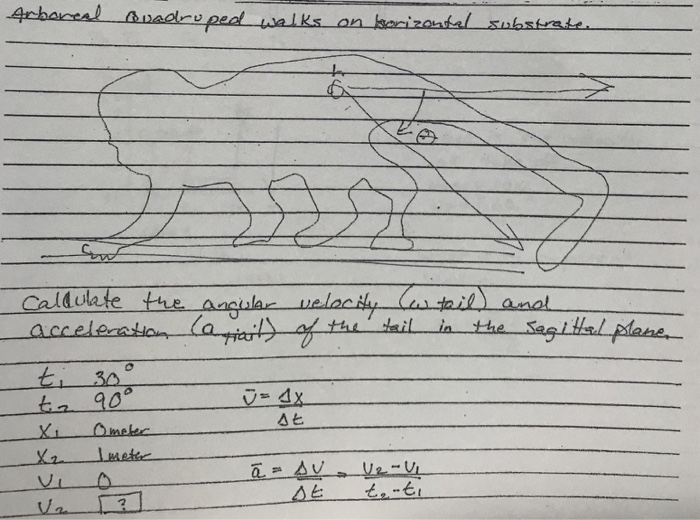 Arboreal Quadruped walks on horizontal substrate.
h
θ
Caldulate the angular velocity (ω tail) and
acceleration (a tail) of the tail in the sagittal plane.
t₁ 30°
t₂ 90°
v̄ = Δx
Δt
X₁ 0 meter
X₂ 1 meter
V₁ 0
ā = ΔV = V₂-V₁
Δt t₂-t₁
V₂ ?